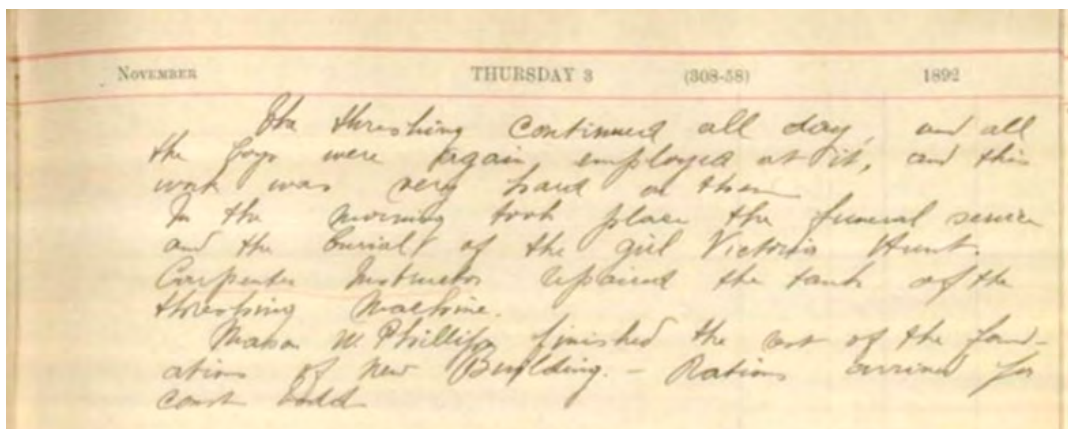 NOVEMBER THURSDAY 3 (308-58) 1892
The threshing continued all day, and all
the boys were again employed at it, and this
work was very hard on them
In the morning took place the funeral service
and the burial of the girl Victoria Hunt.
Carpenter Instructor repaired the tank of the
threshing machine.
Mason W. Phillips finished the rest of the found-
ations of new Building. - Rations arrived for